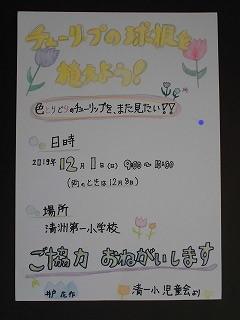 チューリップの球根を
植えよう!
色とりどりのチューリップを、また見たい!!
日時
2019年 12月 1日(日) 9:00〜10:00
(雨のときは12月8日)
場所
清洲第一小学校
ご協力 おねがいします
清一小 児童会より